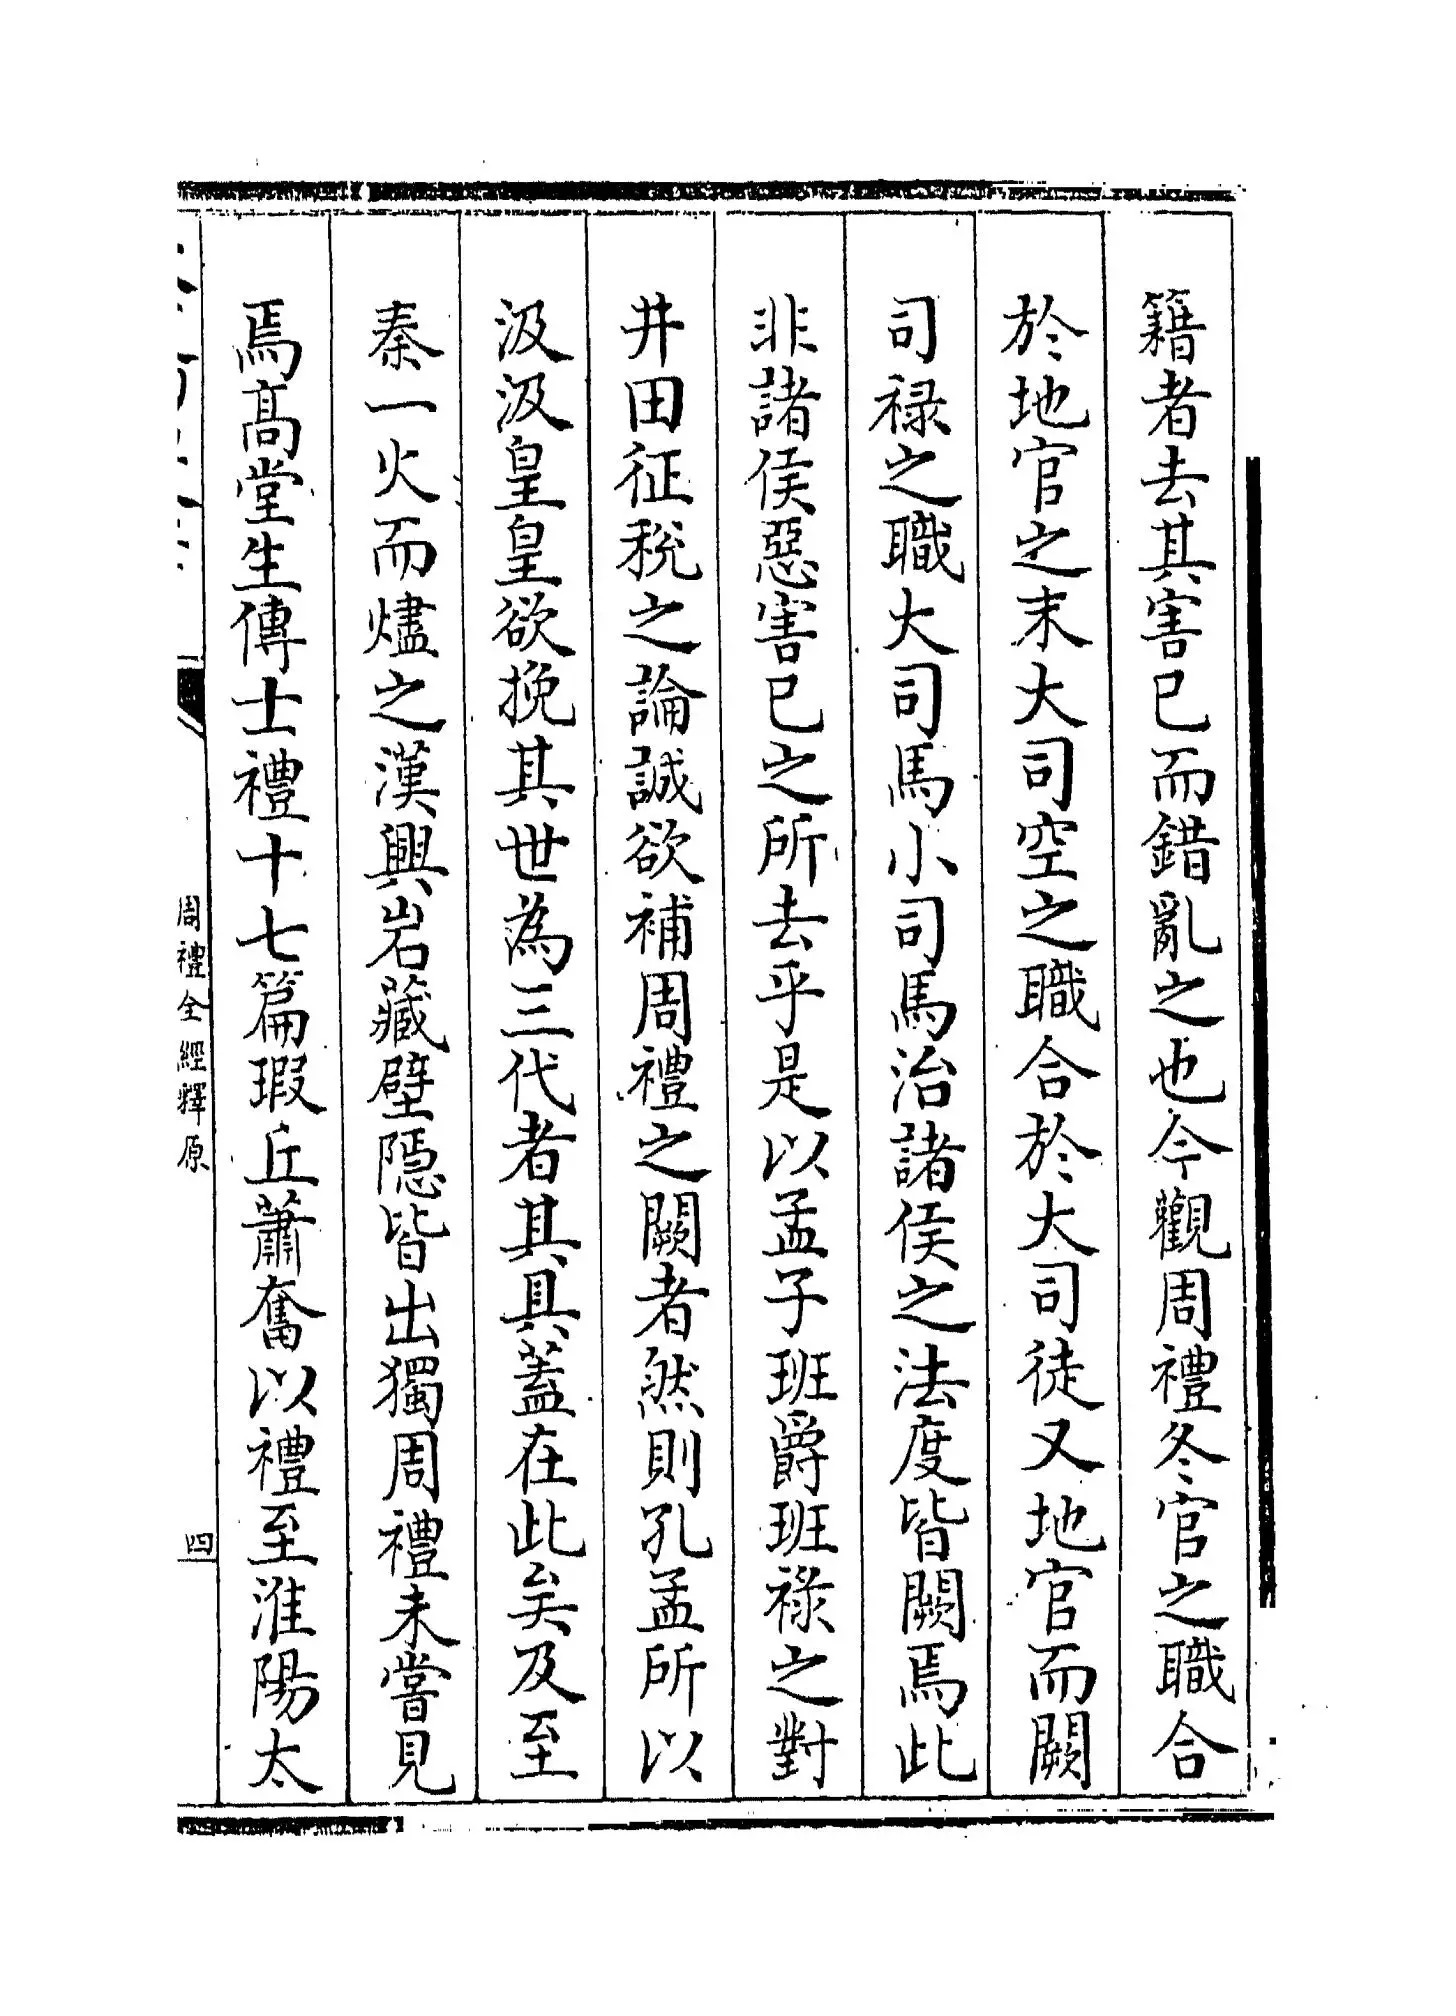 籍者去其害已而錯亂之也今觀周禮冬官之職合
於地官之末大司空之職合於大司徒又地官而闕
司禄之職大司馬小司馬治諸侯之法度皆闕焉此
非諸侯惡害已之所去乎是以孟子班爵班祿之對
井田征稅之論誠欲補周禮之闕者然則孔孟所以
汲汲皇皇欲挽其世為三代者其具蓋在此矣及至
秦一火而燼之漢興岩藏壁隱皆出獨周禮未嘗見
焉高堂生傳士禮十七篇瑕丘蕭奮以禮至淮陽太
周禮全經釋原
四